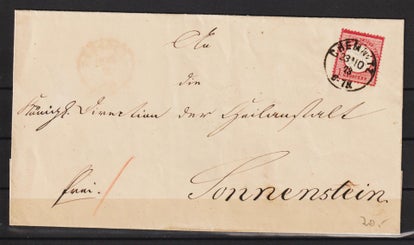 An
die
Königl. Direction der Heilanstalt
frei.
Sonnenstein.
CHEMNITZ
23 10
20.-